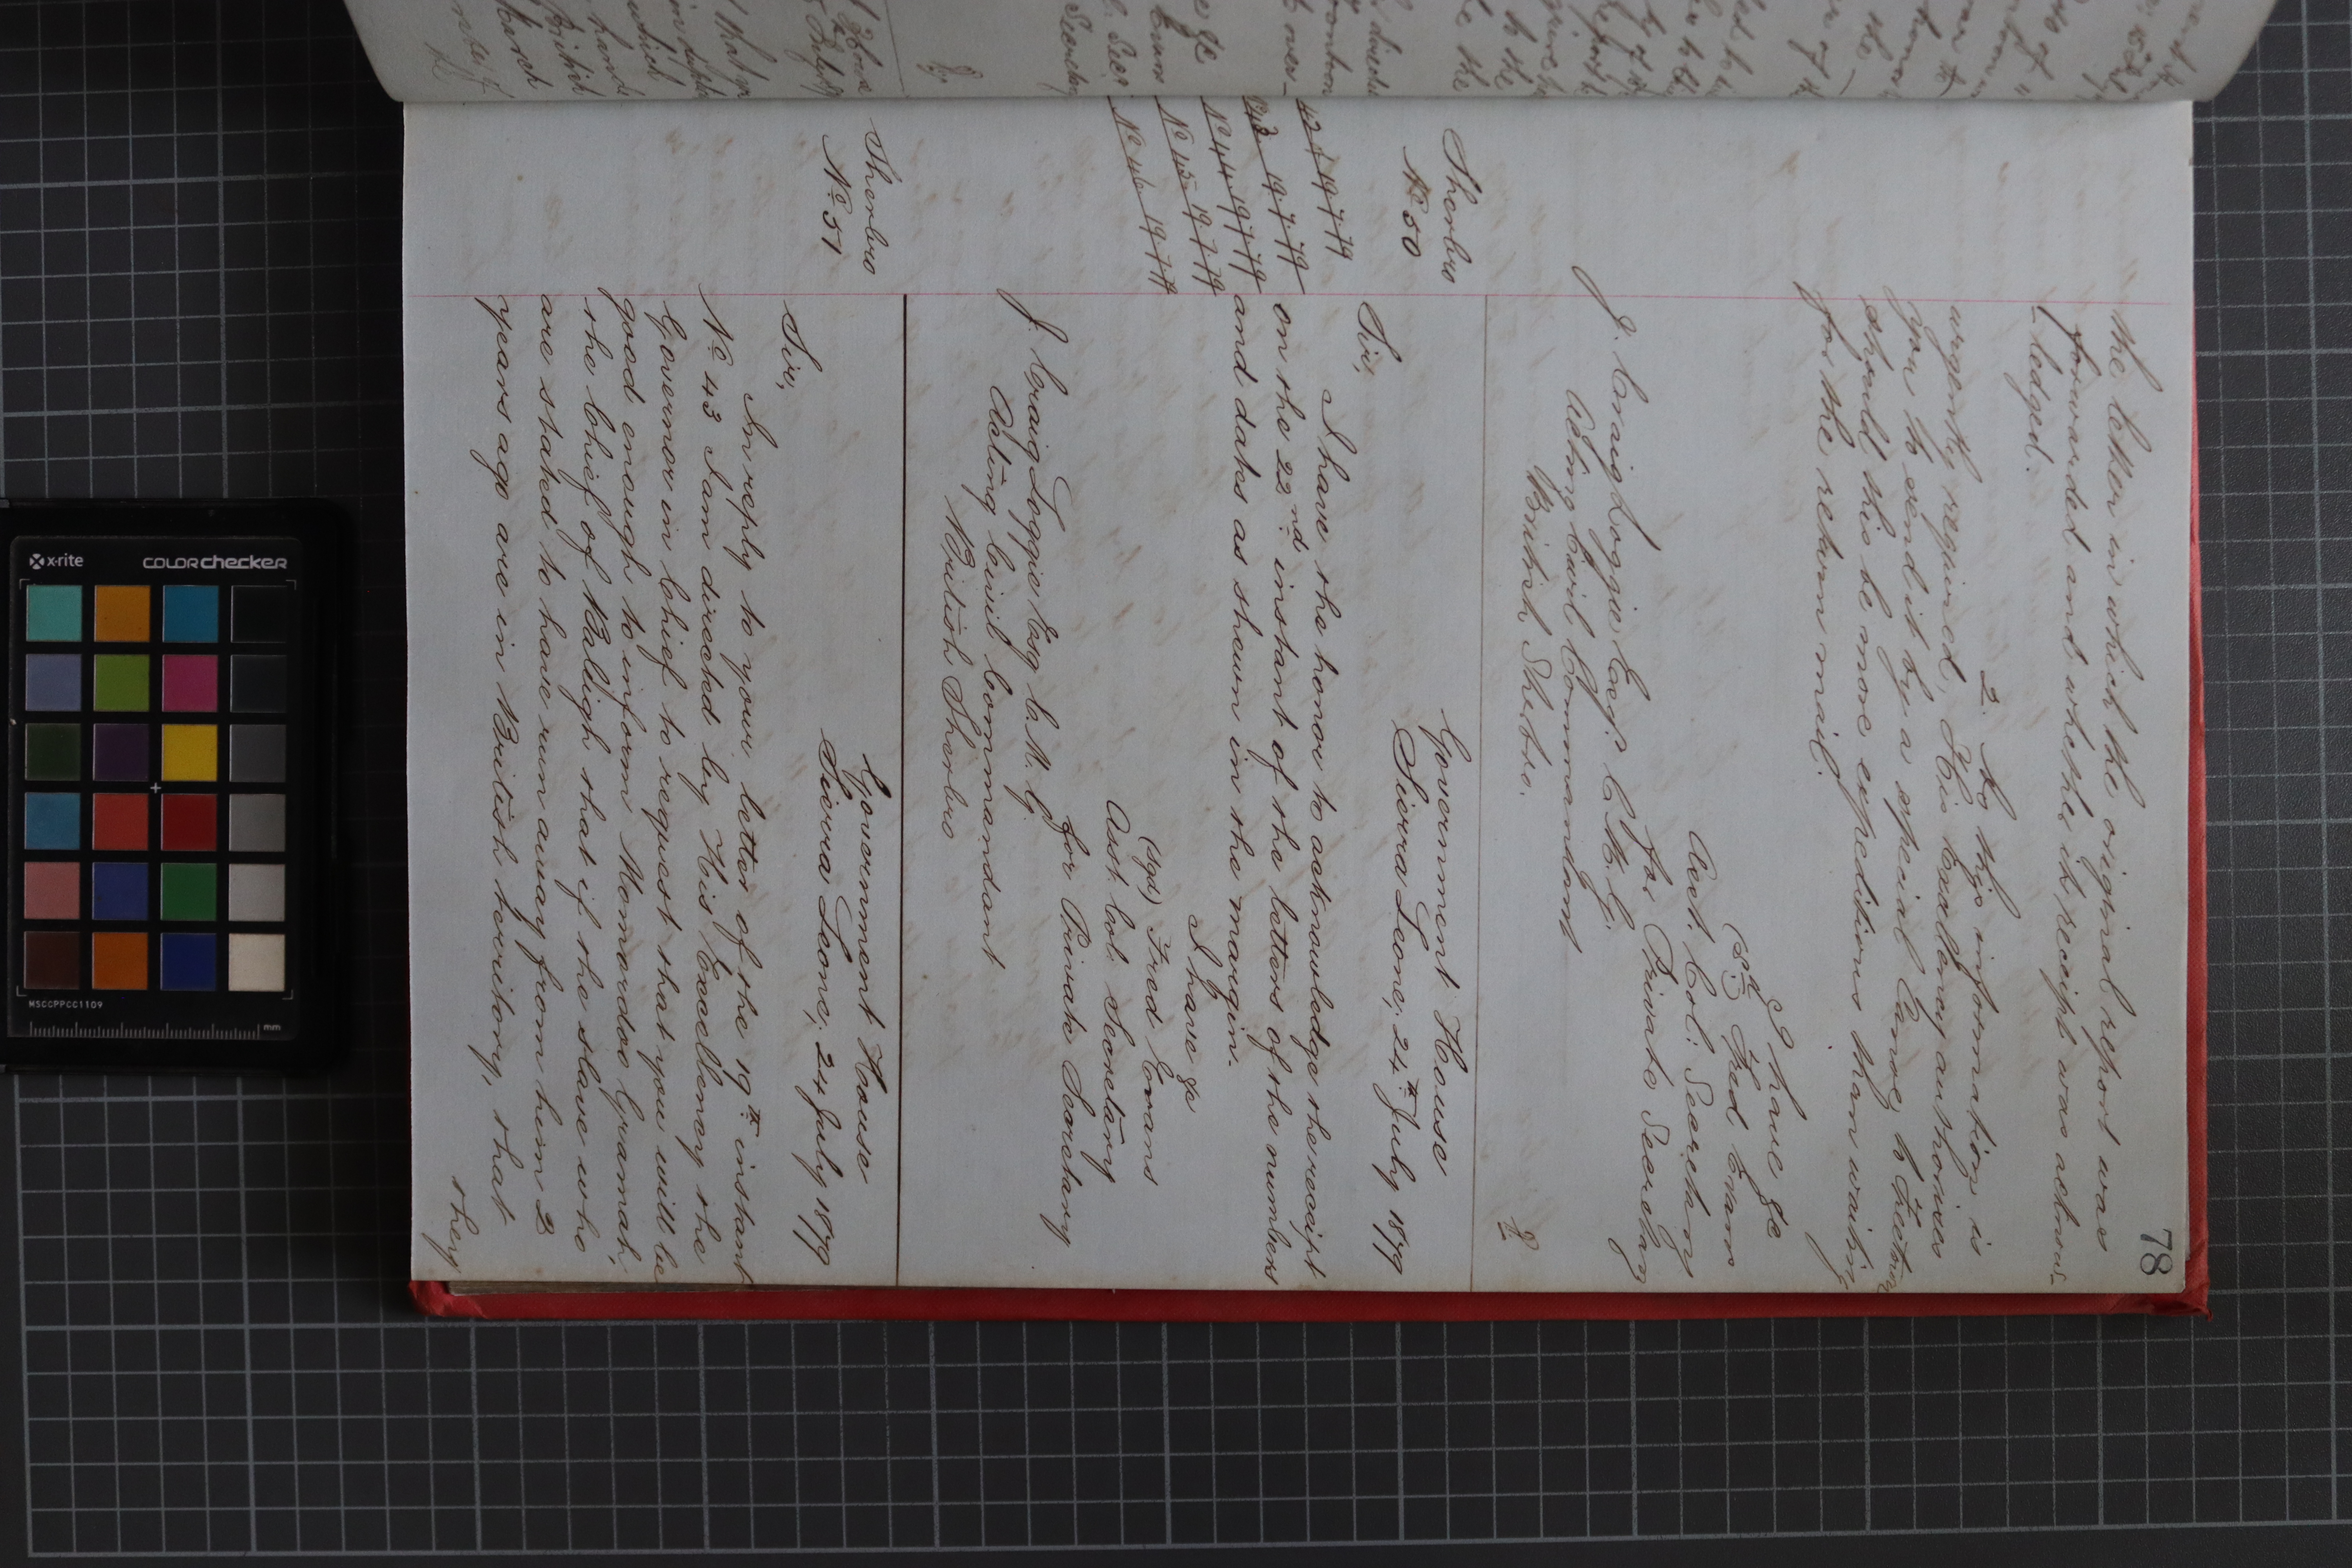 78
the letter in which the original report was
forwarded and whether its receipt was acknow-
ledged.
2. As this information is
urgently required, His Excellency authorises
you to send it by a special Canoe, to Freetown
should this be more expeditious than waiting
for the return mail.
I have &c
(sd) Fred Evans
Asst. Col: Secretary
for Private Secretary
J. Craig Loggie Esqr. C.M.G.
Acting Civil Commandant
British Sherbro.
Sherbro
No 50
Government House
Sierra Leone, 24th July 1879
Sir,
I have the honor to acknowledge the receipt
42 19 7 79
No 43 19.7.79
No 44 19.7.79
No 45 19.7.79
No 46 19.7.79
on the 22nd instant of the letters of the numbers
and dates as shewn in the margin.
I have &c
(sgd) Fred Evans
Asst Col. Secretary
for Private Secretary
J. Craig Loggie Esq C.M.G.
Acting Civil Commandant
British Sherbro
Sherbro
No 51
Government House
Sierra Leone, 24 July 1879
Sir,
In reply to your letter of the 19th instant
No 43 I am directed by His Excellency the
Governor in Chief to request that you will be
good enough to inform Momardoo Gramah,
the Chief of Baligh that if the slave who
are stated to have run away from him 2
years ago are in British territory, that
they
x-rite
colorchecker
MSCCPPCC1109
mm